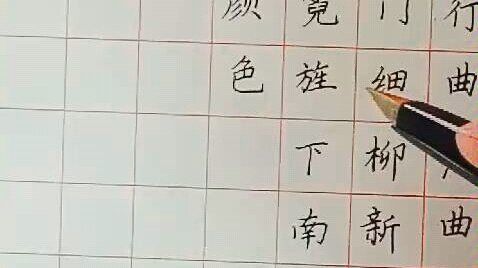 行曲曲
门细柳新
霓旌下南
颜色